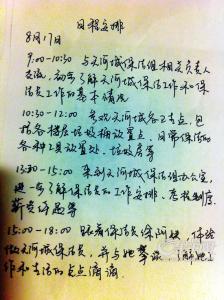 日程安排
8月17日
9:00-10:30 与天河城保洁组相关负责人
交流,初步了解天河城保洁工作和保
洁员工作的基本情况
10:30-12:00 参观天河城各工点,包
括各楼层垃圾桶放置点、日常保洁的
各种工具放置处、垃圾房等
13:30-15:00 来到天河城保洁组办公室,
进一步了解保洁员的工作安排、考核制度、
薪资待遇等
15:00-18:00 跟随保洁员保阿姨,体验
做天河城保洁员,并与她 ,了解她工
作和生活的点点滴滴